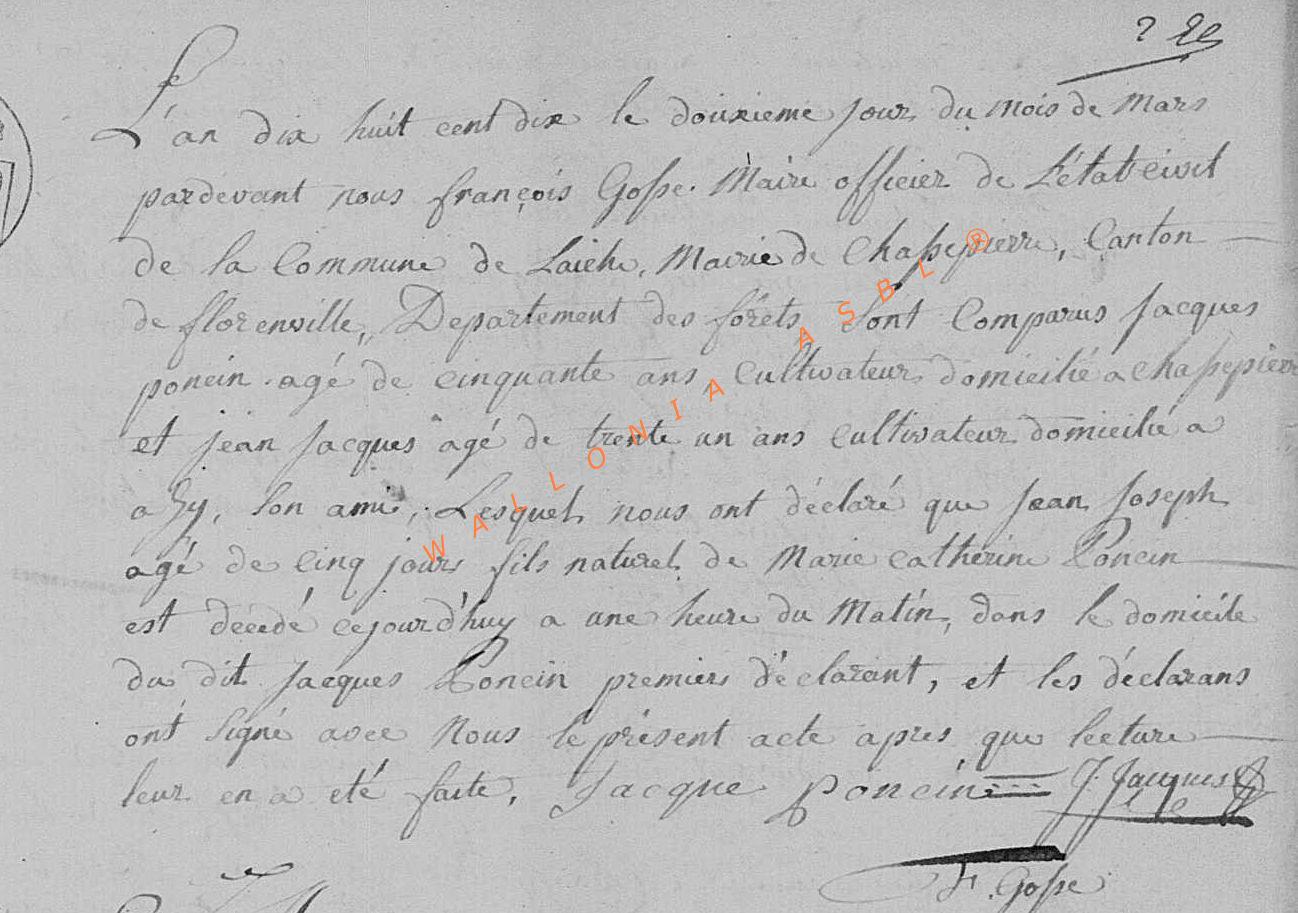 L'an dix huit cent dix le douxieme jour du mois de Mars
pardevant nous françois Gosse. Maire officier de L'état civil
de la Commune de Laiche, Mairie de Chassepierre, Canton
de florenville, Departement des forêts sont Comparus Jacques
poncin agé de cinquante ans Cultivateur domicilié a chassepierre
et jean Jacques agé de trente un ans cultivateur domicilié a
son ami, Lesquels nous ont déclaré que Jean Joseph
agé de cinq jours fils naturel de Marie catherine Poncin
est décédé cejourd'huy a une heure du Matin, dans le domicile
du dit Jacques Poncin premiers déclarant, et les déclarans
ont signé avec Nous le présent acte apres que lecture
leur en a eté faite. Jacque poncin J. Jacques
F. Gosse
WALLONIA ASBL ®